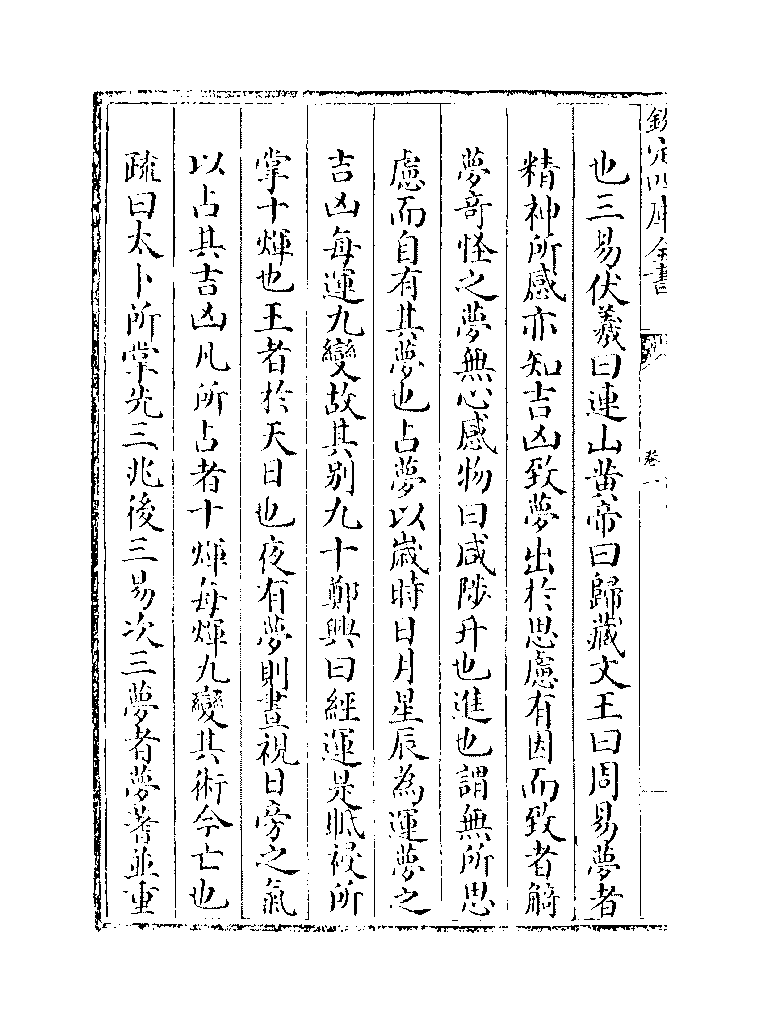 欽定四庫全書
卷一
也三易伏羲曰連山黄帝曰歸藏文王曰周易夢者
精神所感亦知吉凶致夢出於思慮有因而致者觭
夢奇怪之夢無心感物曰咸陟升也進也謂無所思
慮而自有其夢也占夢以歲時日月星辰為運夢之
吉凶每運九變故其别九十鄭興曰經運是眂祲所
掌十煇也王者於天日也夜有夢則晝視日旁之氣
以占其吉凶凡所占者十煇每煇九變其術今亡也
疏曰太卜所掌先三兆後三易次三夢者夢蓍並重